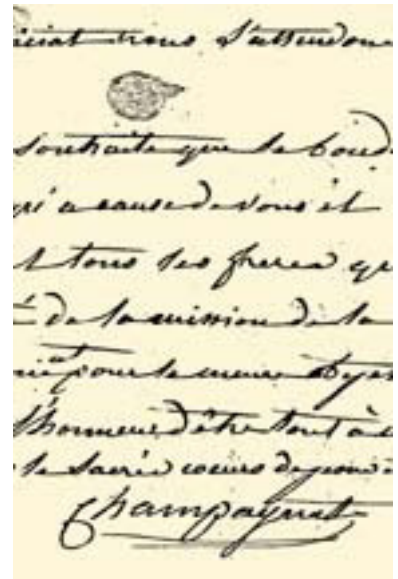 iciat nous l'attendon
souhaite que le bon d
qu'a cause de vous et
t tous les freres qu
é de la mission de la
pour le meme objet
l'honneur d'être tout à
le Sacré coeurs de
Champagnat